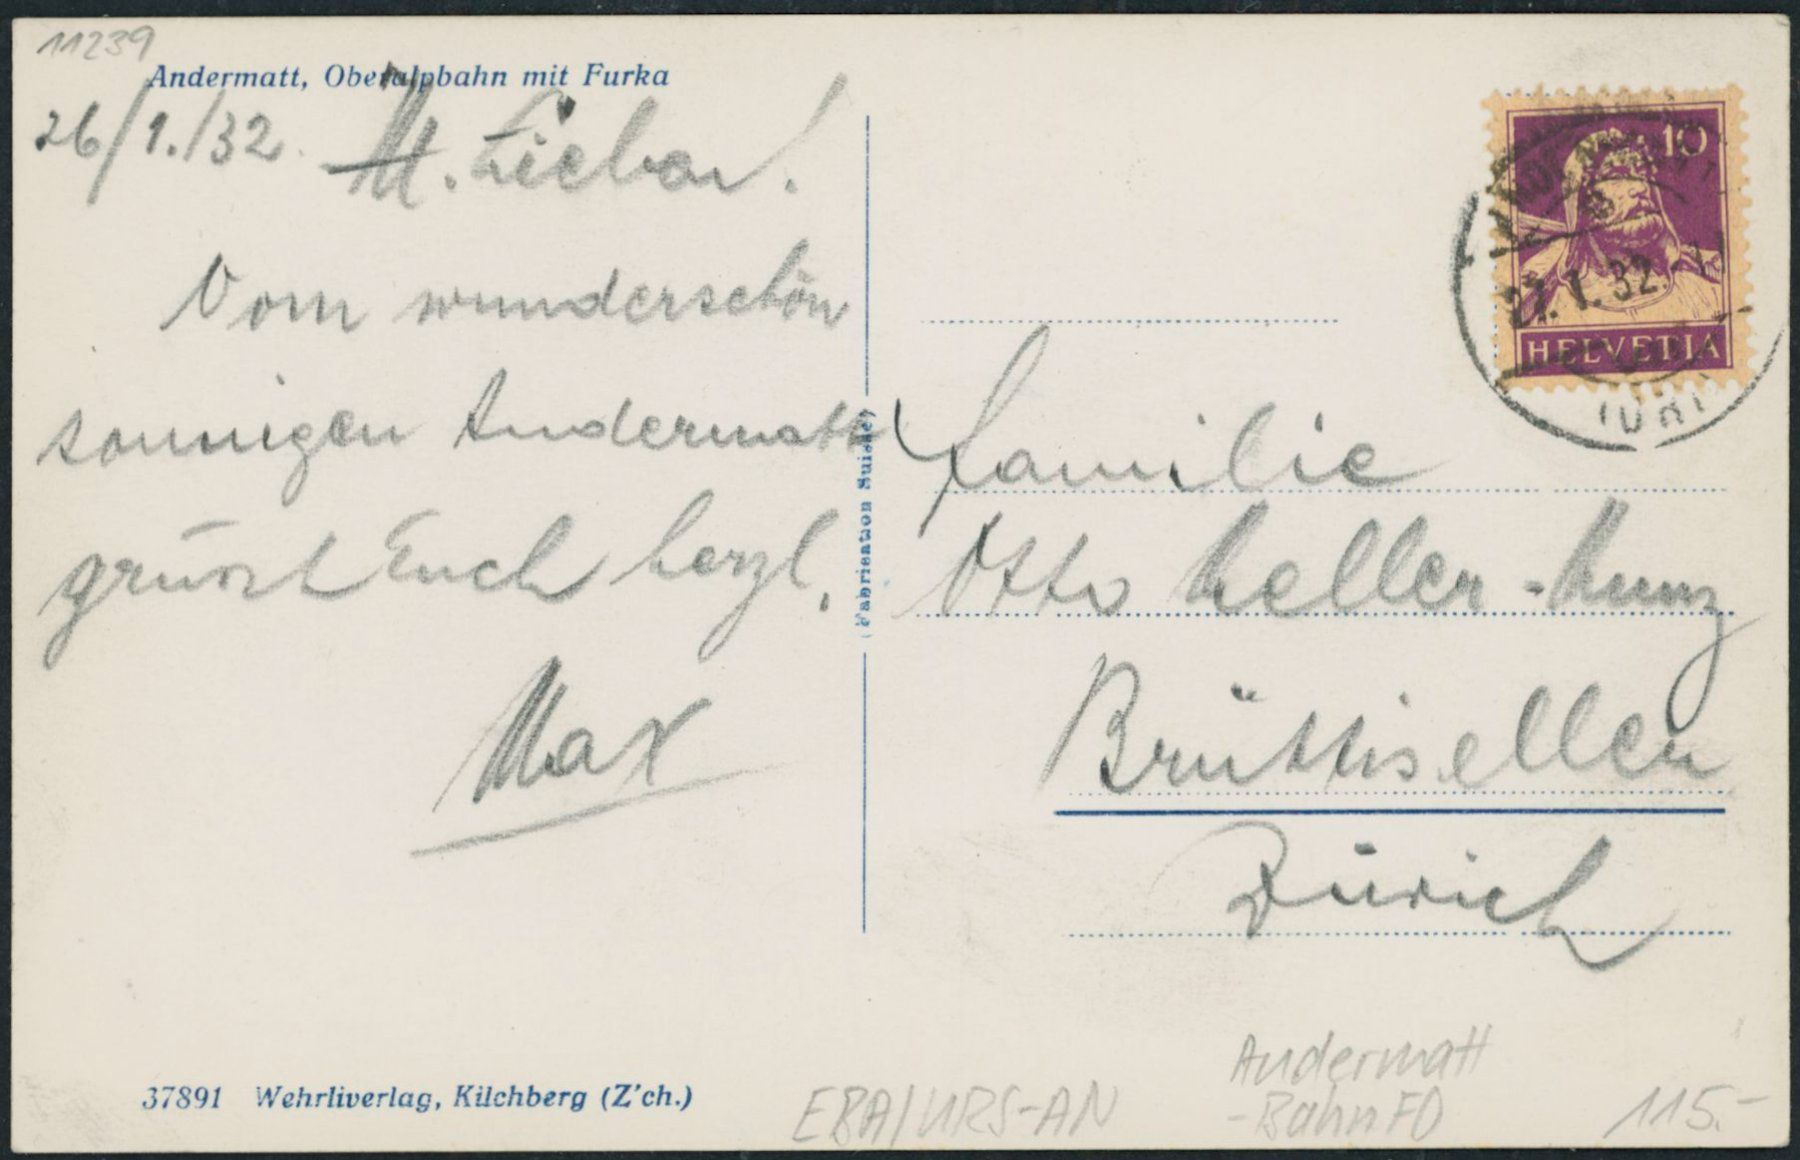 11239
Andermatt, Oberalpbahn mit Furka
26/1./32. M. Lieben!
Vom wunderschön
sonnigen Andermatt
grüsst Euch herzl.
Max
37891 Wehrliverlag, Kilchberg (Z'ch.)
(Fabrication Suisse)
10
27.1.32.
HELVETIA
(URI)
Familie
Otto Keller-Kunz
Brüttisellen
Zürich
EBA/URS-AN
Andermatt
-Bahn FO
115.-